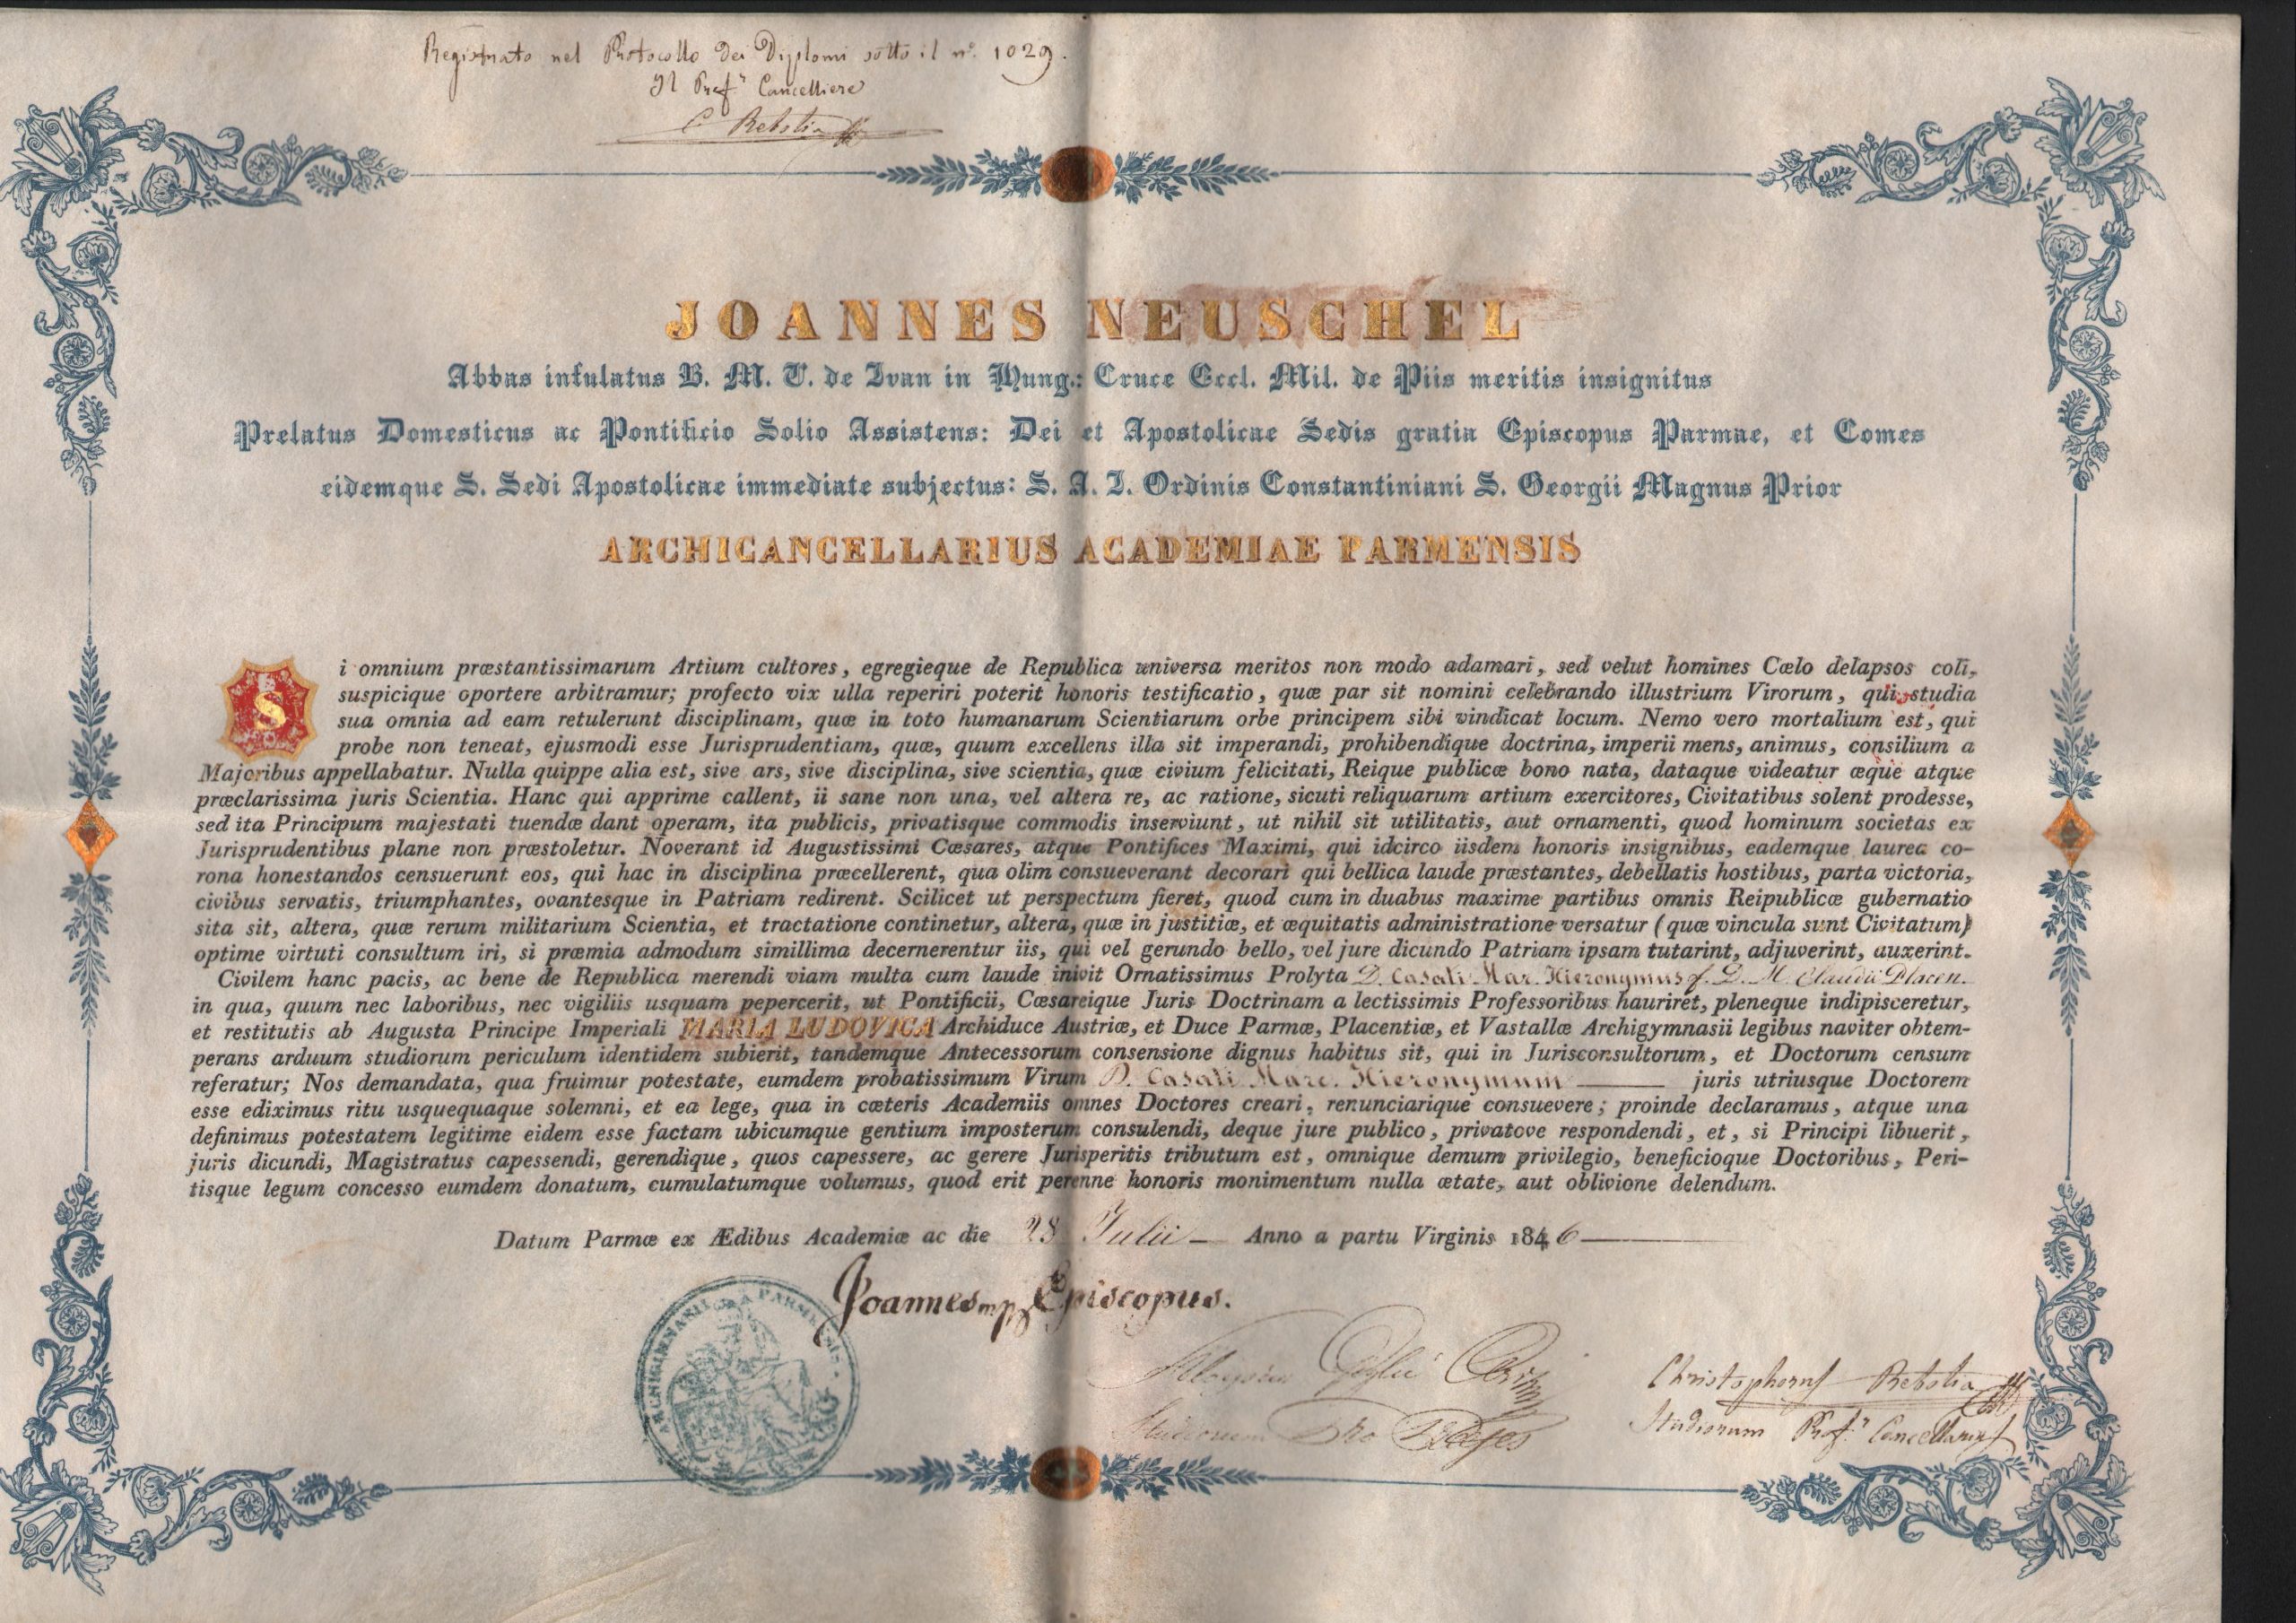 Registrato nel Protocollo dei Diplomi sotto il nº. 1029.
Il Profr. Cancelliere
C Rebolia
JOANNES NEUSCHEL
Abbas infulatus B. M. V. de Ivan in Hung.: Cruce Eccl. Mil. de Piis meritis insignitus
Prelatus Domesticus ac Pontificio Solio Assistens: Dei et Apostolicae Sedis gratia Episcopus Parmae, et Comes
eidemque S. Sedi Apostolicae immediate subjectus: S. A. I. Ordinis Constantiniani S. Georgii Magnus Prior
ARCHICANCELLARIUS ACADEMIAE PARMENSIS
Si omnium præstantissimarum Artium cultores, egregieque de Republica universa meritos non modo adamari, sed velut homines Cœlo delapsos coli,
suspicique oportere arbitramur; profecto vix ulla reperiri poterit honoris testificatio, quæ par sit nomini celebrando illustrium Virorum, qui studia
sua omnia ad eam retulerunt disciplinam, quæ in toto humanarum Scientiarum orbe principem sibi vindicat locum. Nemo vero mortalium est, qui
probe non teneat, ejusmodi esse Jurisprudentiam, quæ, quum excellens illa sit imperandi, prohibendique doctrina, imperii mens, animus, consilium a
Majoribus appellabatur. Nulla quippe alia est, sive ars, sive disciplina, sive scientia, quæ civium felicitati, Reique publicæ bono nata, dataque videatur æque atque
præclarissima juris Scientia. Hanc qui apprime callent, ii sane non una, vel altera re, ac ratione, sicuti reliquarum artium exercitores, Civitatibus solent prodesse,
sed ita Principum majestati tuendæ dant operam, ita publicis, privatisque commodis inserviunt, ut nihil sit utilitatis, aut ornamenti, quod hominum societas ex
Jurisprudentibus plane non præstoletur. Noverant id Augustissimi Cæsares, atque Pontifices Maximi, qui idcirco iisdem honoris insignibus, eademque laurea co-
rona honestandos censuerunt eos, qui hac in disciplina præcellerent, qua olim consueverant decorari qui bellica laude præstantes, debellatis hostibus, parta victoria,
civibus servatis, triumphantes, ovantesque in Patriam redirent. Scilicet ut perspectum fieret, quod cum in duabus maxime partibus omnis Reipublicæ gubernatio
sita sit, altera, quæ rerum militarium Scientia, et tractatione continetur, altera, quæ in justitiæ, et æquitatis administratione versatur (quæ vincula sunt Civitatum)
optime virtuti consultum iri, si præmia admodum simillima decernerentur iis, qui vel gerundo bello, vel jure dicundo Patriam ipsam tutarint, adjuverint, auxerint.
Civilem hanc pacis, ac bene de Republica merendi viam multa cum laude inivit Ornatissimus Prolyta D. Casati Mar. Hieronymus f. D. M. Claudii Placen.
in qua, quum nec laboribus, nec vigiliis usquam pepercerit, ut Pontificii, Cæsareique Juris Doctrinam a lectissimis Professoribus hauriret, pleneque indipisceretur,
et restitutis ab Augusta Principe Imperiali MARIA LUDOVICA Archiduce Austriæ, et Duce Parmæ, Placentiæ, et Vastallæ Archigymnasii legibus naviter obtem-
perans arduum studiorum periculum identidem subierit, tandemque Antecessorum consensione dignus habitus sit, qui in Jurisconsultorum, et Doctorum censum
referatur; Nos demandata, qua fruimur potestate, eumdem probatissimum Virum D. Casati Marc. Hieronymum juris utriusque Doctorem
esse ediximus ritu usquequaque solemni, et ea lege, qua in cæteris Academiis omnes Doctores creari, renunciarique consuevere; proinde declaramus, atque una
definimus potestatem legitime eidem esse factam ubicumque gentium imposterum consulendi, deque jure publico, privatove respondendi, et, si Principi libuerit,
juris dicundi, Magistratus capessendi, gerendique, quos capessere, ac gerere Jurisperitis tributum est, omnique demum privilegio, beneficioque Doctoribus, Peri-
tisque legum concesso eumdem donatum, cumulatumque volumus, quod erit perenne honoris monimentum nulla ætate, aut oblivione delendum.
Datum Parmæ ex Ædibus Academiæ ac die 28 Julii Anno a partu Virginis 1846
Joannes mp Episcopus.
Aloysius
Studiorum Pro Praeses
Christophorus Rebolia
Studiorum Profr. Cancellarius